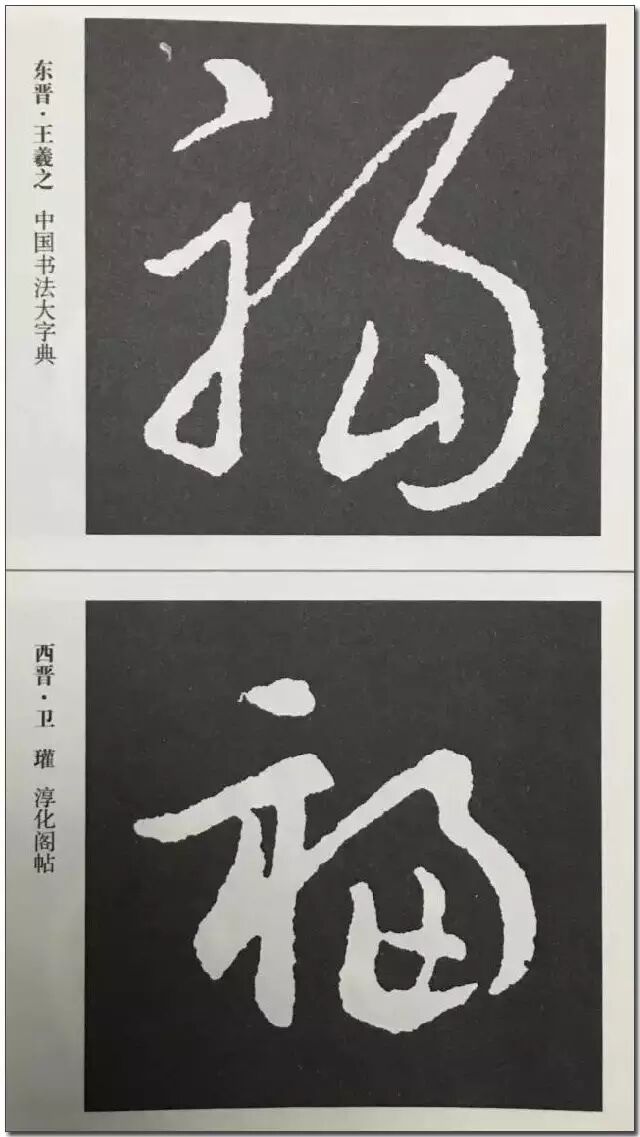 东晋·王羲之 中国书法大字典
福
西晋·卫 瓘 淳化阁帖
福